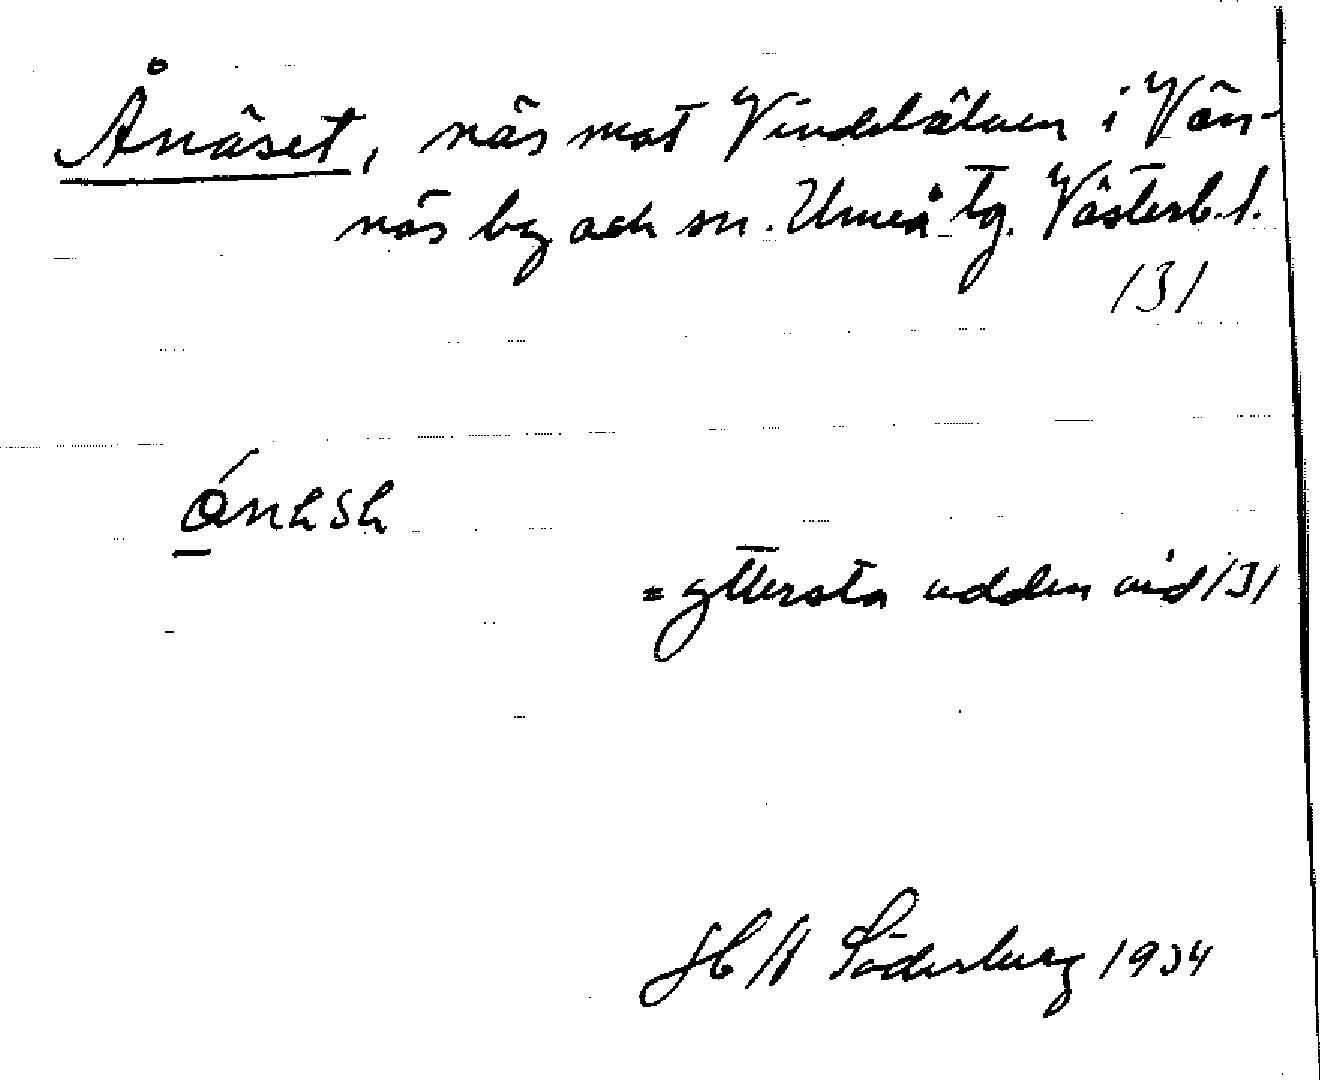 Ånäset, näs mot Vindelälven i Vän-
näs by och sn. Umeå tg. Västerb. l.
/3/
= yttersta udden vid /3/
H A Söderberg 1934